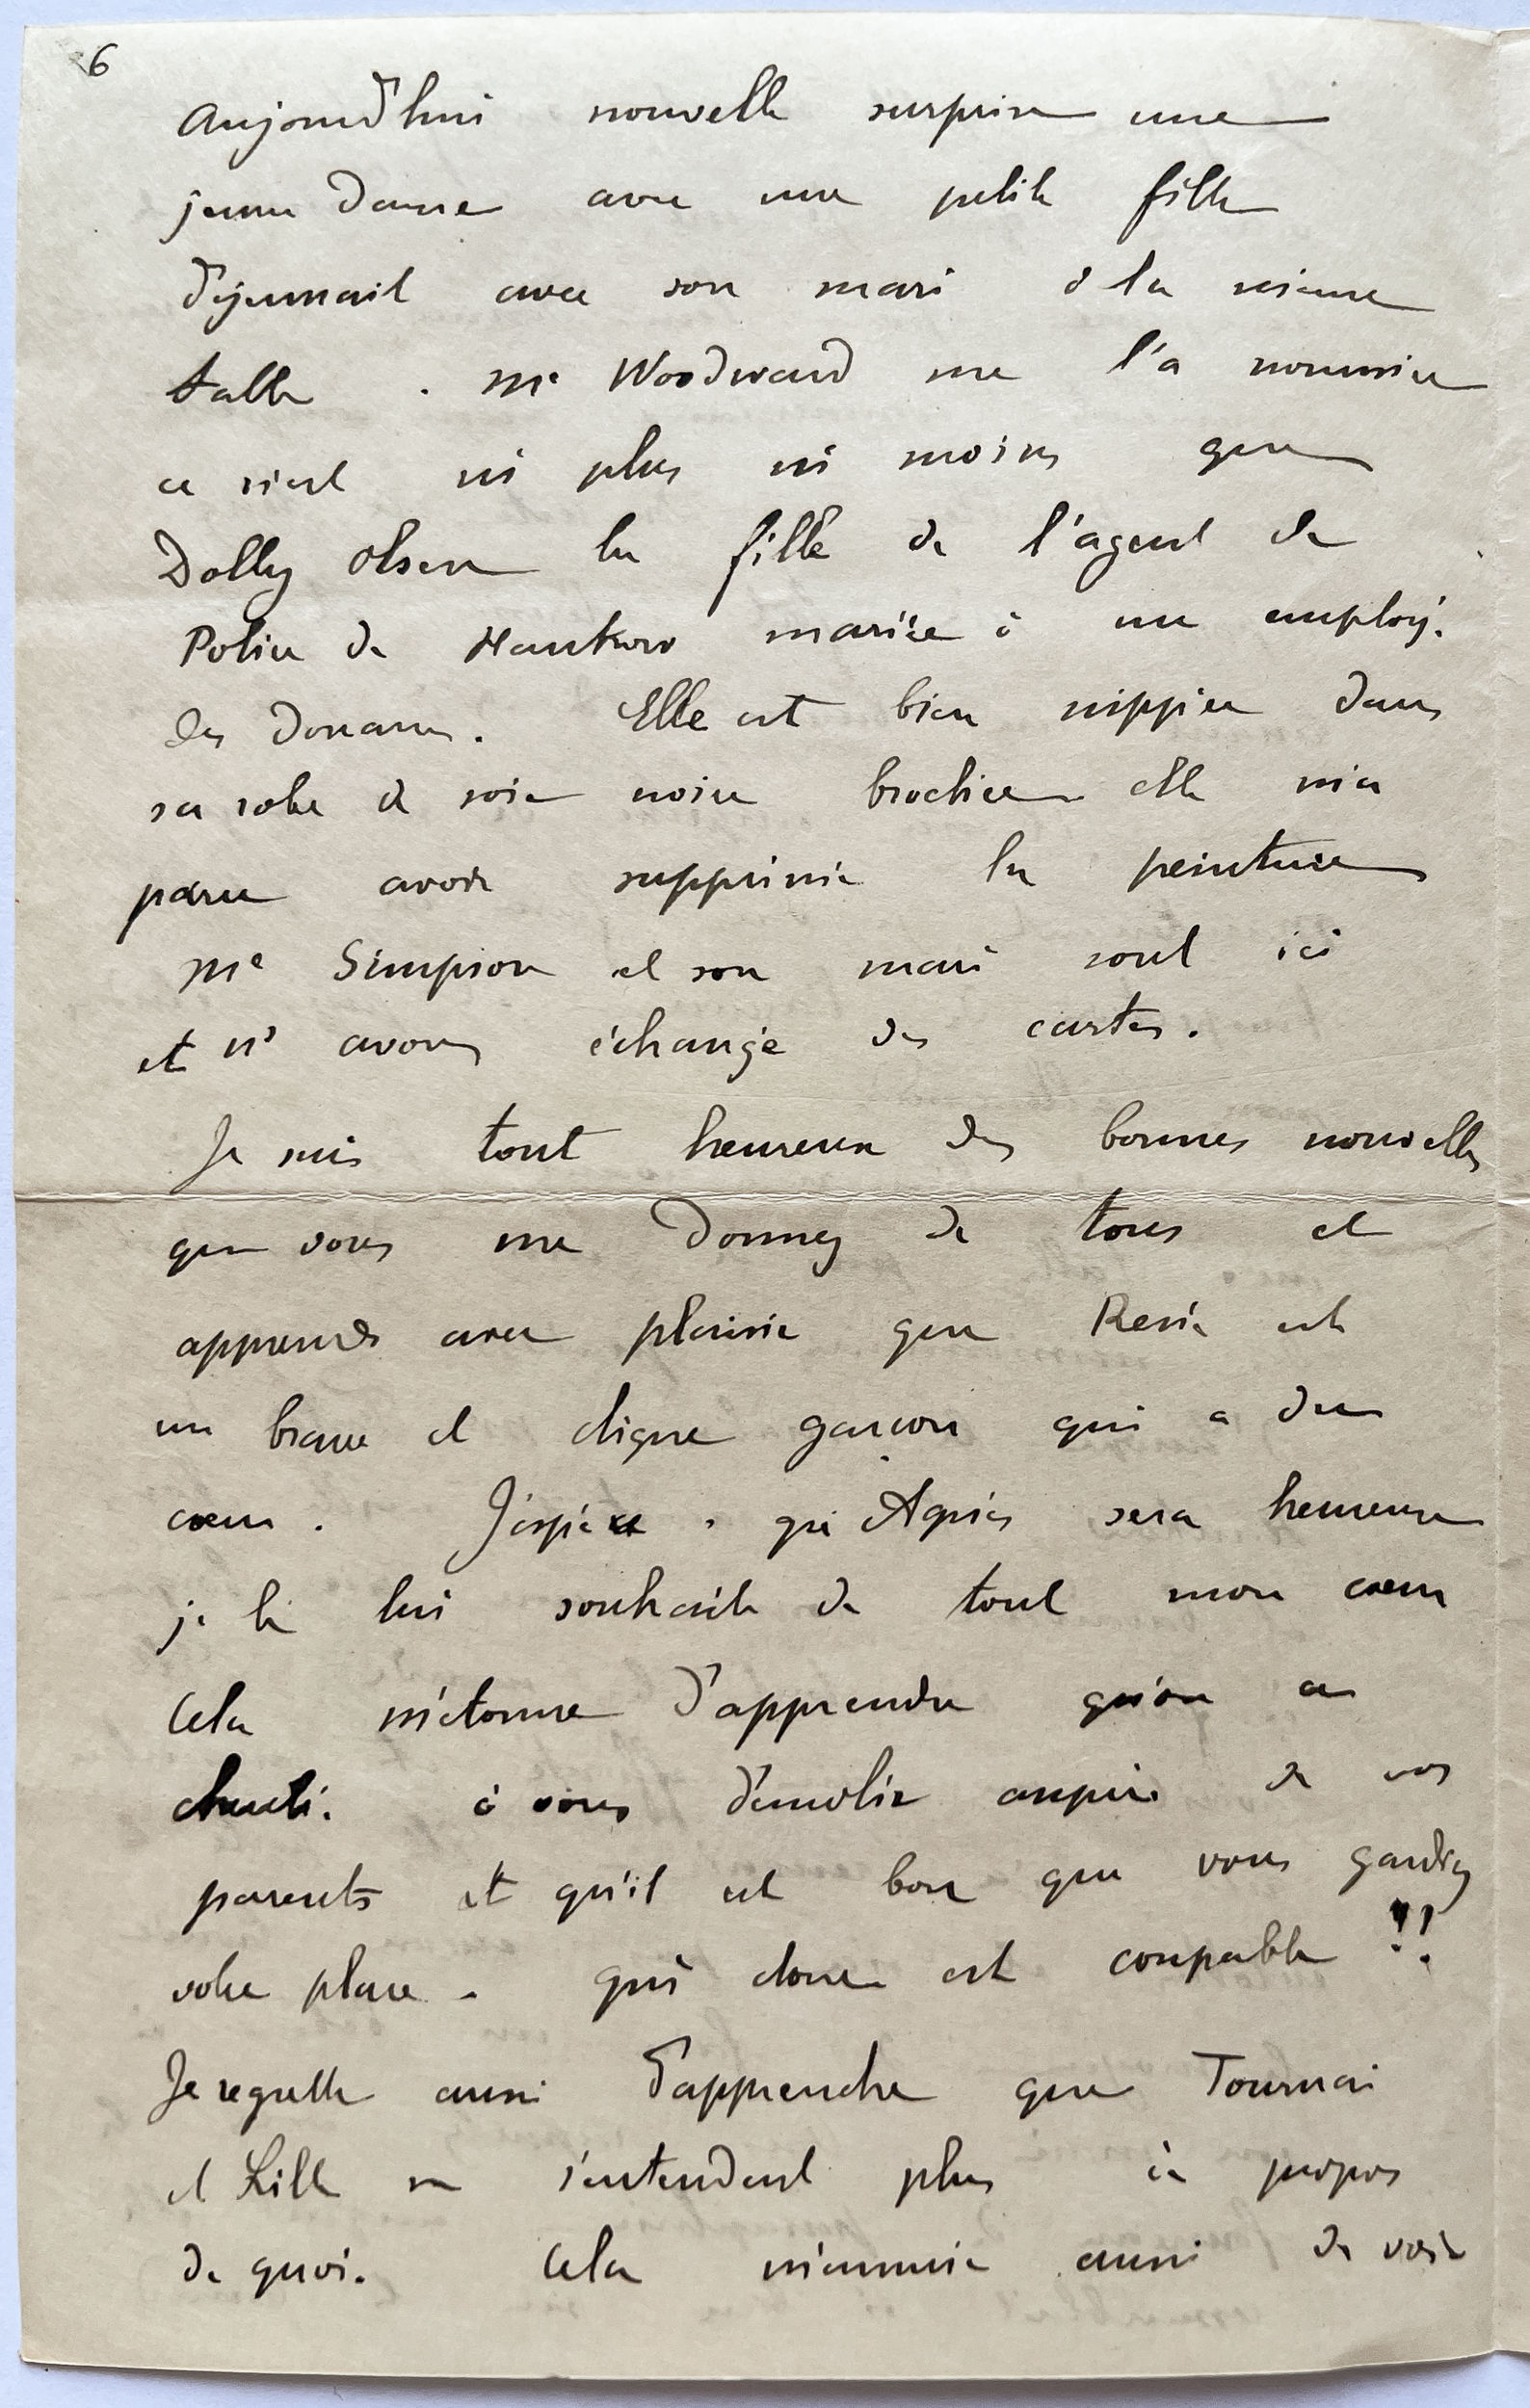 6
Aujourd'hui nouvelle surprise une
jeune dame avec une petite fille
déjeunait avec son mari à la même
table. Me Woodward me l'a nommée
ce n'est ni plus ni moins que
Dolly Olsen la fille de l'agent de
Police de Hankow mariée à un employé
des Douanes. Elle est bien nippée dans
sa robe de soie noire brochée elle m'a
paru avoir supprimé la peinture
Me Simpson et son mari sont ici
et ns avons échangé des cartes.
Je suis tout heureux des bonnes nouvelles
que vous me donnez de tous et
apprends avec plaisir que René est
un brave et digne garçon qui a du
coeur. J'espère que Agnès sera heureuse
je le lui souhaite de tout mon coeur
Cela m'étonne d'apprendre qu'on a
à vous démolir auprès de vos
parents et qu'il est bon que vous gardiez
votre place. qui donc est coupable !!
Je regrette aussi d'apprendre que Tournai
et Lille ne s'entendent plus à propos
de quoi. Cela m'ennuie aussi de voir